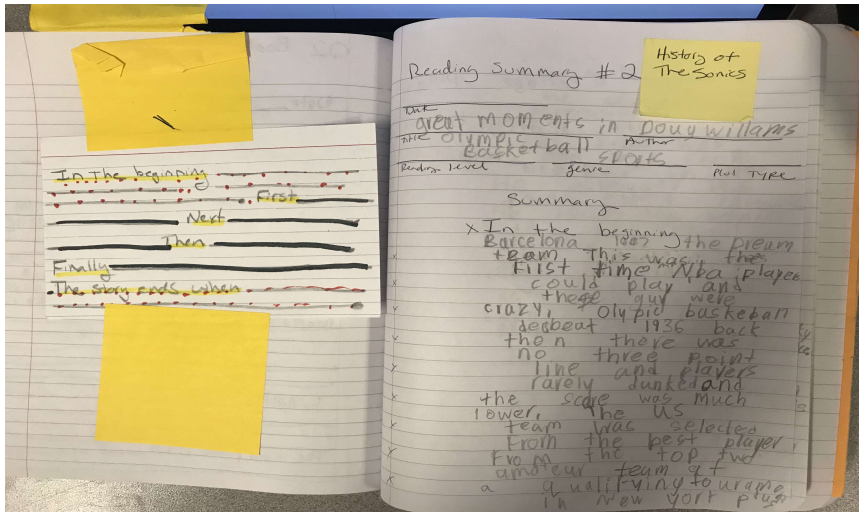 In the beginning
First
Next
Then
Finally
The story ends when
Reading Summary #2
History of
The Sonics
great moments in Doug willams
Title olympic Author
Basketball sports
Reading Level genre Plot TYPE
Summary
x In the beginning
Barcelona the Dream
team This was the
First time Nba player
could play and
these guy were
crazy, Olypic basketball
debeat 1936 back
then there was
no three point
line and players
rarely dunked and
the score was much
lower, The US
team was selected
From the best player
From the top two
amateur team at
a qualifying tourame
in New York